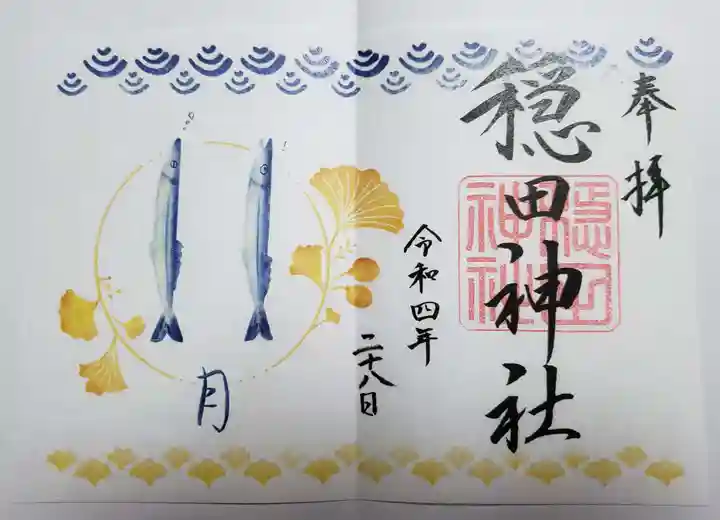 奉拝
穏田神社
穏田
神社
令和四年
二十八日
月